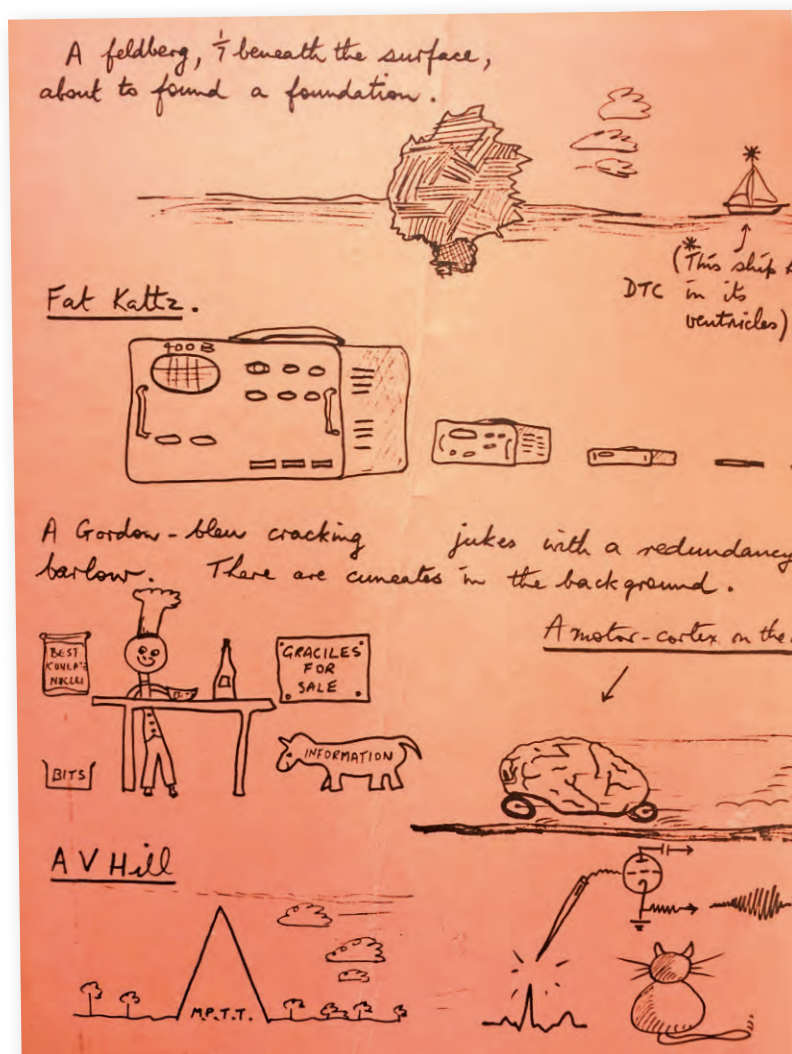 A feldberg, 1/7 beneath the surface,
about to found a foundation.
(*This ship
DTC in its
ventricles)
Fat Kattz.
400B
A Gordon-bleu cracking jukes with a redundancy
barlow. There are cuneates in the background.
A motor-cortex on the
BEST
CUNEATE
NUCLEI
GRACILES
FOR
SALE
BITS
INFORMATION
A V Hill
M.P.T.T.